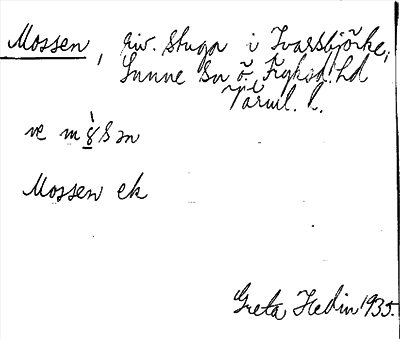 Mossen, riv. stuga i Ivarsbjörke,
Sunne sn Ö. Fryksd. hd
Värml. l.
ve m s ən
Mossen ek
Greta Hedin 1935.